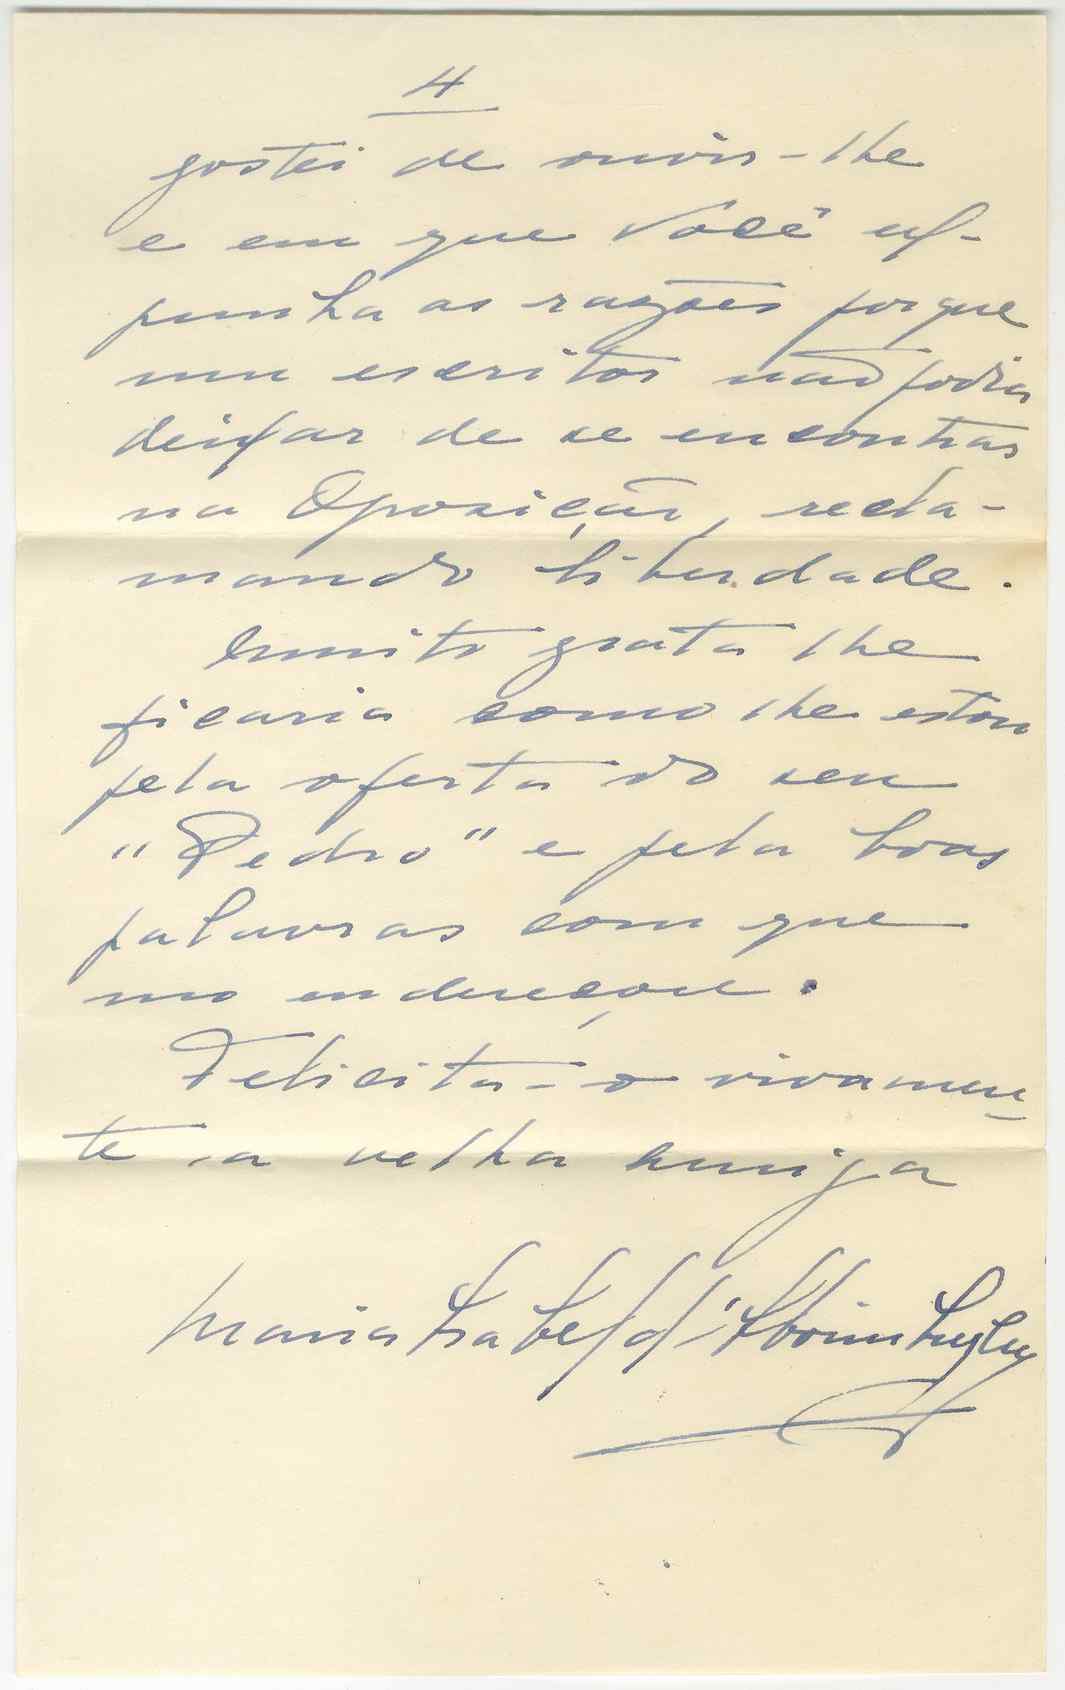 4
gostei de ouvir-lhe
e em que Você ex-
punha as razões porque
um escritor não podia
deixar de se encontrar
na Oposição, recla-
mando liberdade.
Muito grata lhe
ficaria como lhe estou
pela oferta do seu
"Pedro" e pela boas
palavras com que
mo endereçou.
Felicita-o vivamen-
te a velha amiga
Maria Isabel d'Aboim Inglez